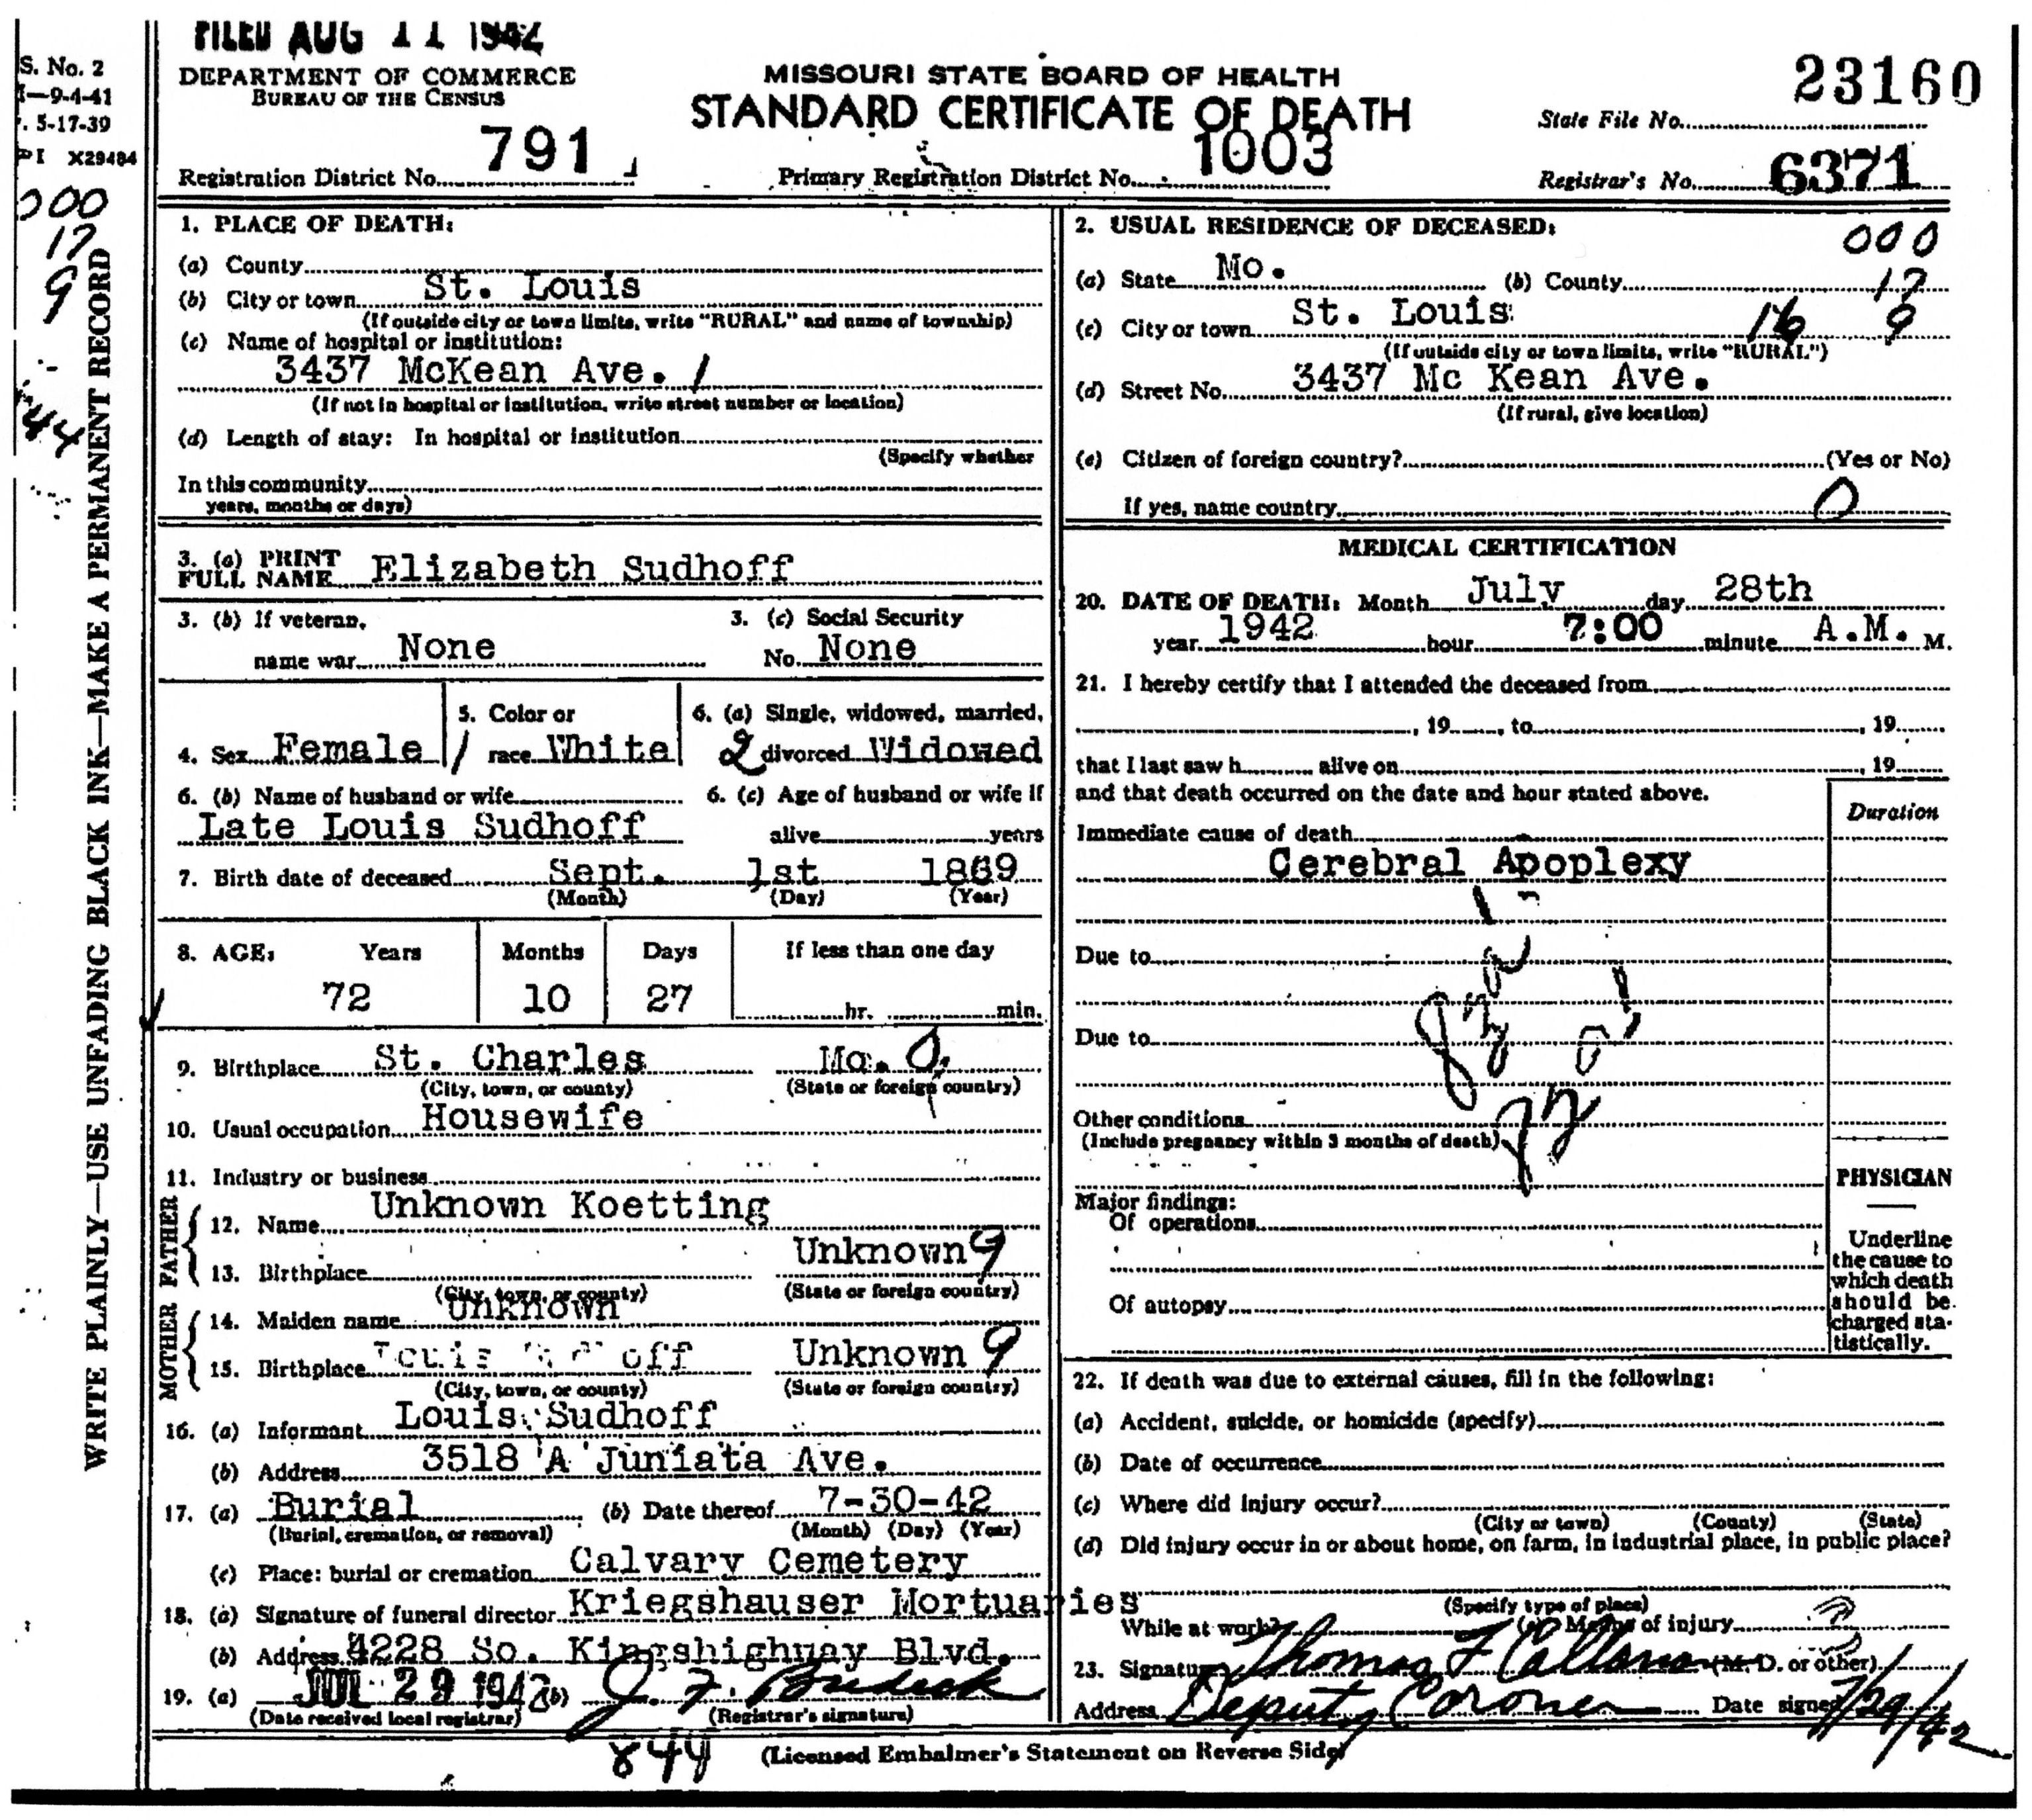 FILED AUG 11 1942
S. No. 2
—9-4-41
. 5-17-39
PI X29484
DEPARTMENT OF COMMERCE
BUREAU OF THE CENSUS
MISSOURI STATE BOARD OF HEALTH
STANDARD CERTIFICATE OF DEATH
State File No. 23160
Registration District No. 791
Primary Registration District No. 1003
Registrar's No. 6371
000
17
9
44
WRITE PLAINLY—USE UNFADING BLACK INK—MAKE A PERMANENT RECORD
1. PLACE OF DEATH:
(a) County
(b) City or town St. Louis
(If outside city or town limits, write "RURAL" and name of township)
(c) Name of hospital or institution:
3437 McKean Ave. /
(If not in hospital or institution, write street number or location)
(d) Length of stay: In hospital or institution
(Specify whether
In this community
years, months or days)
2. USUAL RESIDENCE OF DECEASED:
000
(a) State Mo. (b) County 17
(c) City or town St. Louis 16 9
(If outside city or town limits, write "RURAL")
(d) Street No. 3437 Mc Kean Ave.
(If rural, give location)
(e) Citizen of foreign country? (Yes or No)
If yes, name country 0
3. (a) PRINT
FULL NAME Elizabeth Sudhoff
3. (b) If veteran, 3. (c) Social Security
name war None No. None
4. Sex Female / 5. Color or race White 6. (a) Single, widowed, married, 2 divorced Widowed
6. (b) Name of husband or wife 6. (c) Age of husband or wife if
Late Louis Sudhoff alive years
7. Birth date of deceased Sept. 1st 1869
(Month) (Day) (Year)
8. AGE: Years Months Days If less than one day
72 10 27 hr. min.
9. Birthplace St. Charles Mo. 0
(City, town, or county) (State or foreign country)
10. Usual occupation Housewife
11. Industry or business
FATHER
12. Name Unknown Koetting
13. Birthplace Unknown 9
(City, town, or county) (State or foreign country)
MOTHER
14. Maiden name Unknown
15. Birthplace Unknown 9
(City, town, or county) (State or foreign country)
16. (a) Informant Louis Sudhoff
(b) Address 3518 A Juniata Ave.
17. (a) Burial (b) Date thereof 7-30-42
(Burial, cremation, or removal) (Month) (Day) (Year)
(c) Place: burial or cremation Calvary Cemetery
18. (a) Signature of funeral director Kriegshauser Mortuaries
(b) Address 4228 So. Kingshighway Blvd.
19. (a) JUL 29 1942 (b) J. F. Bredeck
(Date received local registrar) (Registrar's signature)
MEDICAL CERTIFICATION
20. DATE OF DEATH: Month July day 28th
year 1942 hour 7:00 minute A.M. M.
21. I hereby certify that I attended the deceased from
, 19 , to , 19
that I last saw h alive on , 19
and that death occurred on the date and hour stated above.
Duration
Immediate cause of death
Cerebral Apoplexy
Due to
Due to
Other conditions
(Include pregnancy within 3 months of death)
Major findings:
Of operations
Of autopsy
PHYSICIAN
Underline
the cause to
which death
should be
charged sta-
tistically.
22. If death was due to external causes, fill in the following:
(a) Accident, suicide, or homicide (specify)
(b) Date of occurrence
(c) Where did injury occur?
(City or town) (County) (State)
(d) Did injury occur in or about home, on farm, in industrial place, in public place?
(Specify type of place)
While at work? (e) Means of injury
23. Signature Thomas F Callanan (M. D. or other)
Address Deputy Coroner Date signed 7/29/42
844 (Licensed Embalmer's Statement on Reverse Side)